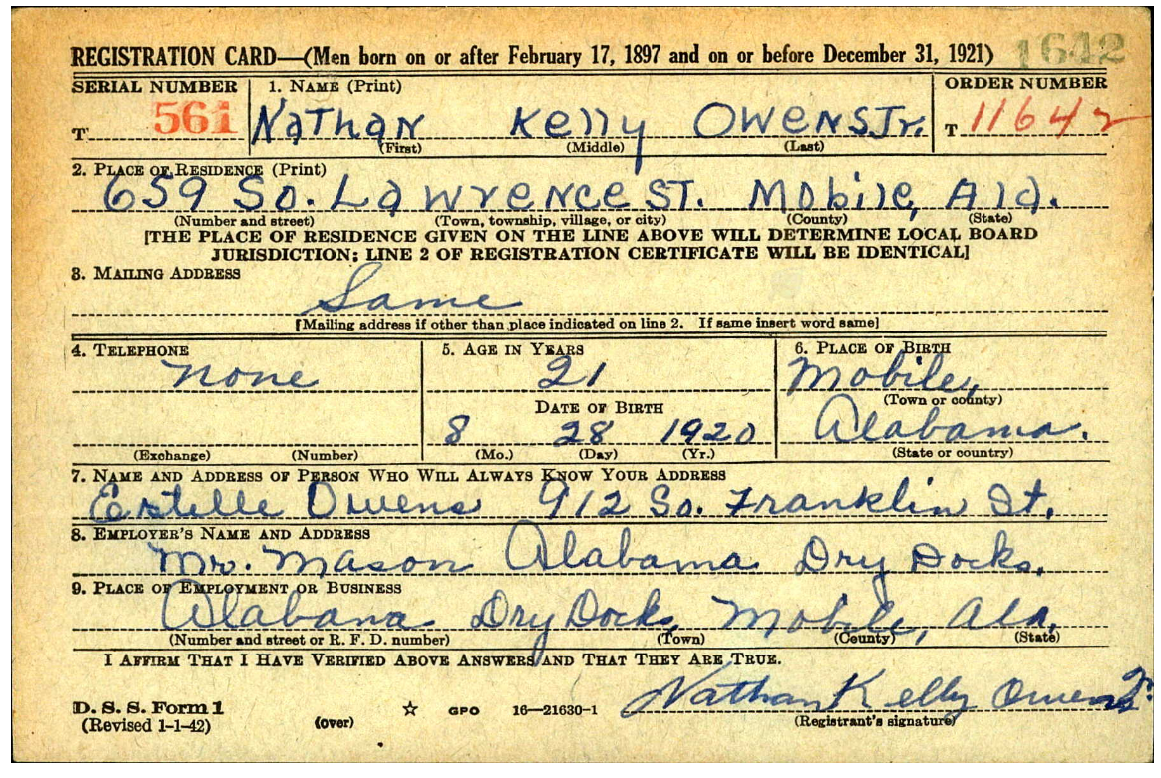 REGISTRATION CARD—(Men born on or after February 17, 1897 and on or before December 31, 1921) 1642
SERIAL NUMBER 1. NAME (Print) ORDER NUMBER
T 561 Nathan Kelly Owens Jr. T 11642
(First) (Middle) (Last)
2. PLACE OF RESIDENCE (Print)
659 So. Lawrence ST. Mobile, Ala.
(Number and street) (Town, township, village, or city) (County) (State)
[THE PLACE OF RESIDENCE GIVEN ON THE LINE ABOVE WILL DETERMINE LOCAL BOARD
JURISDICTION; LINE 2 OF REGISTRATION CERTIFICATE WILL BE IDENTICAL]
3. MAILING ADDRESS
Same
[Mailing address if other than place indicated on line 2. If same insert word same]
4. TELEPHONE 5. AGE IN YEARS 6. PLACE OF BIRTH
none 21 Mobile,
(Town or county)
DATE OF BIRTH
8 28 1920 Alabama.
(Exchange) (Number) (Mo.) (Day) (Yr.) (State or country)
7. NAME AND ADDRESS OF PERSON WHO WILL ALWAYS KNOW YOUR ADDRESS
Estelle Owens 912 So. Franklin St.
8. EMPLOYER'S NAME AND ADDRESS
Mr. Mason Alabama Dry Docks.
9. PLACE OF EMPLOYMENT OR BUSINESS
Alabana Dry Docks, Mobile, Ala,
(Number and street or R. F. D. number) (Town) (County) (State)
I AFFIRM THAT I HAVE VERIFIED ABOVE ANSWERS AND THAT THEY ARE TRUE.
Nathan Kelly Owens Jr.
D. S. S. Form 1
(Revised 1-1-42) (over) ☆ GPO 16—21630-1 (Registrant's signature)